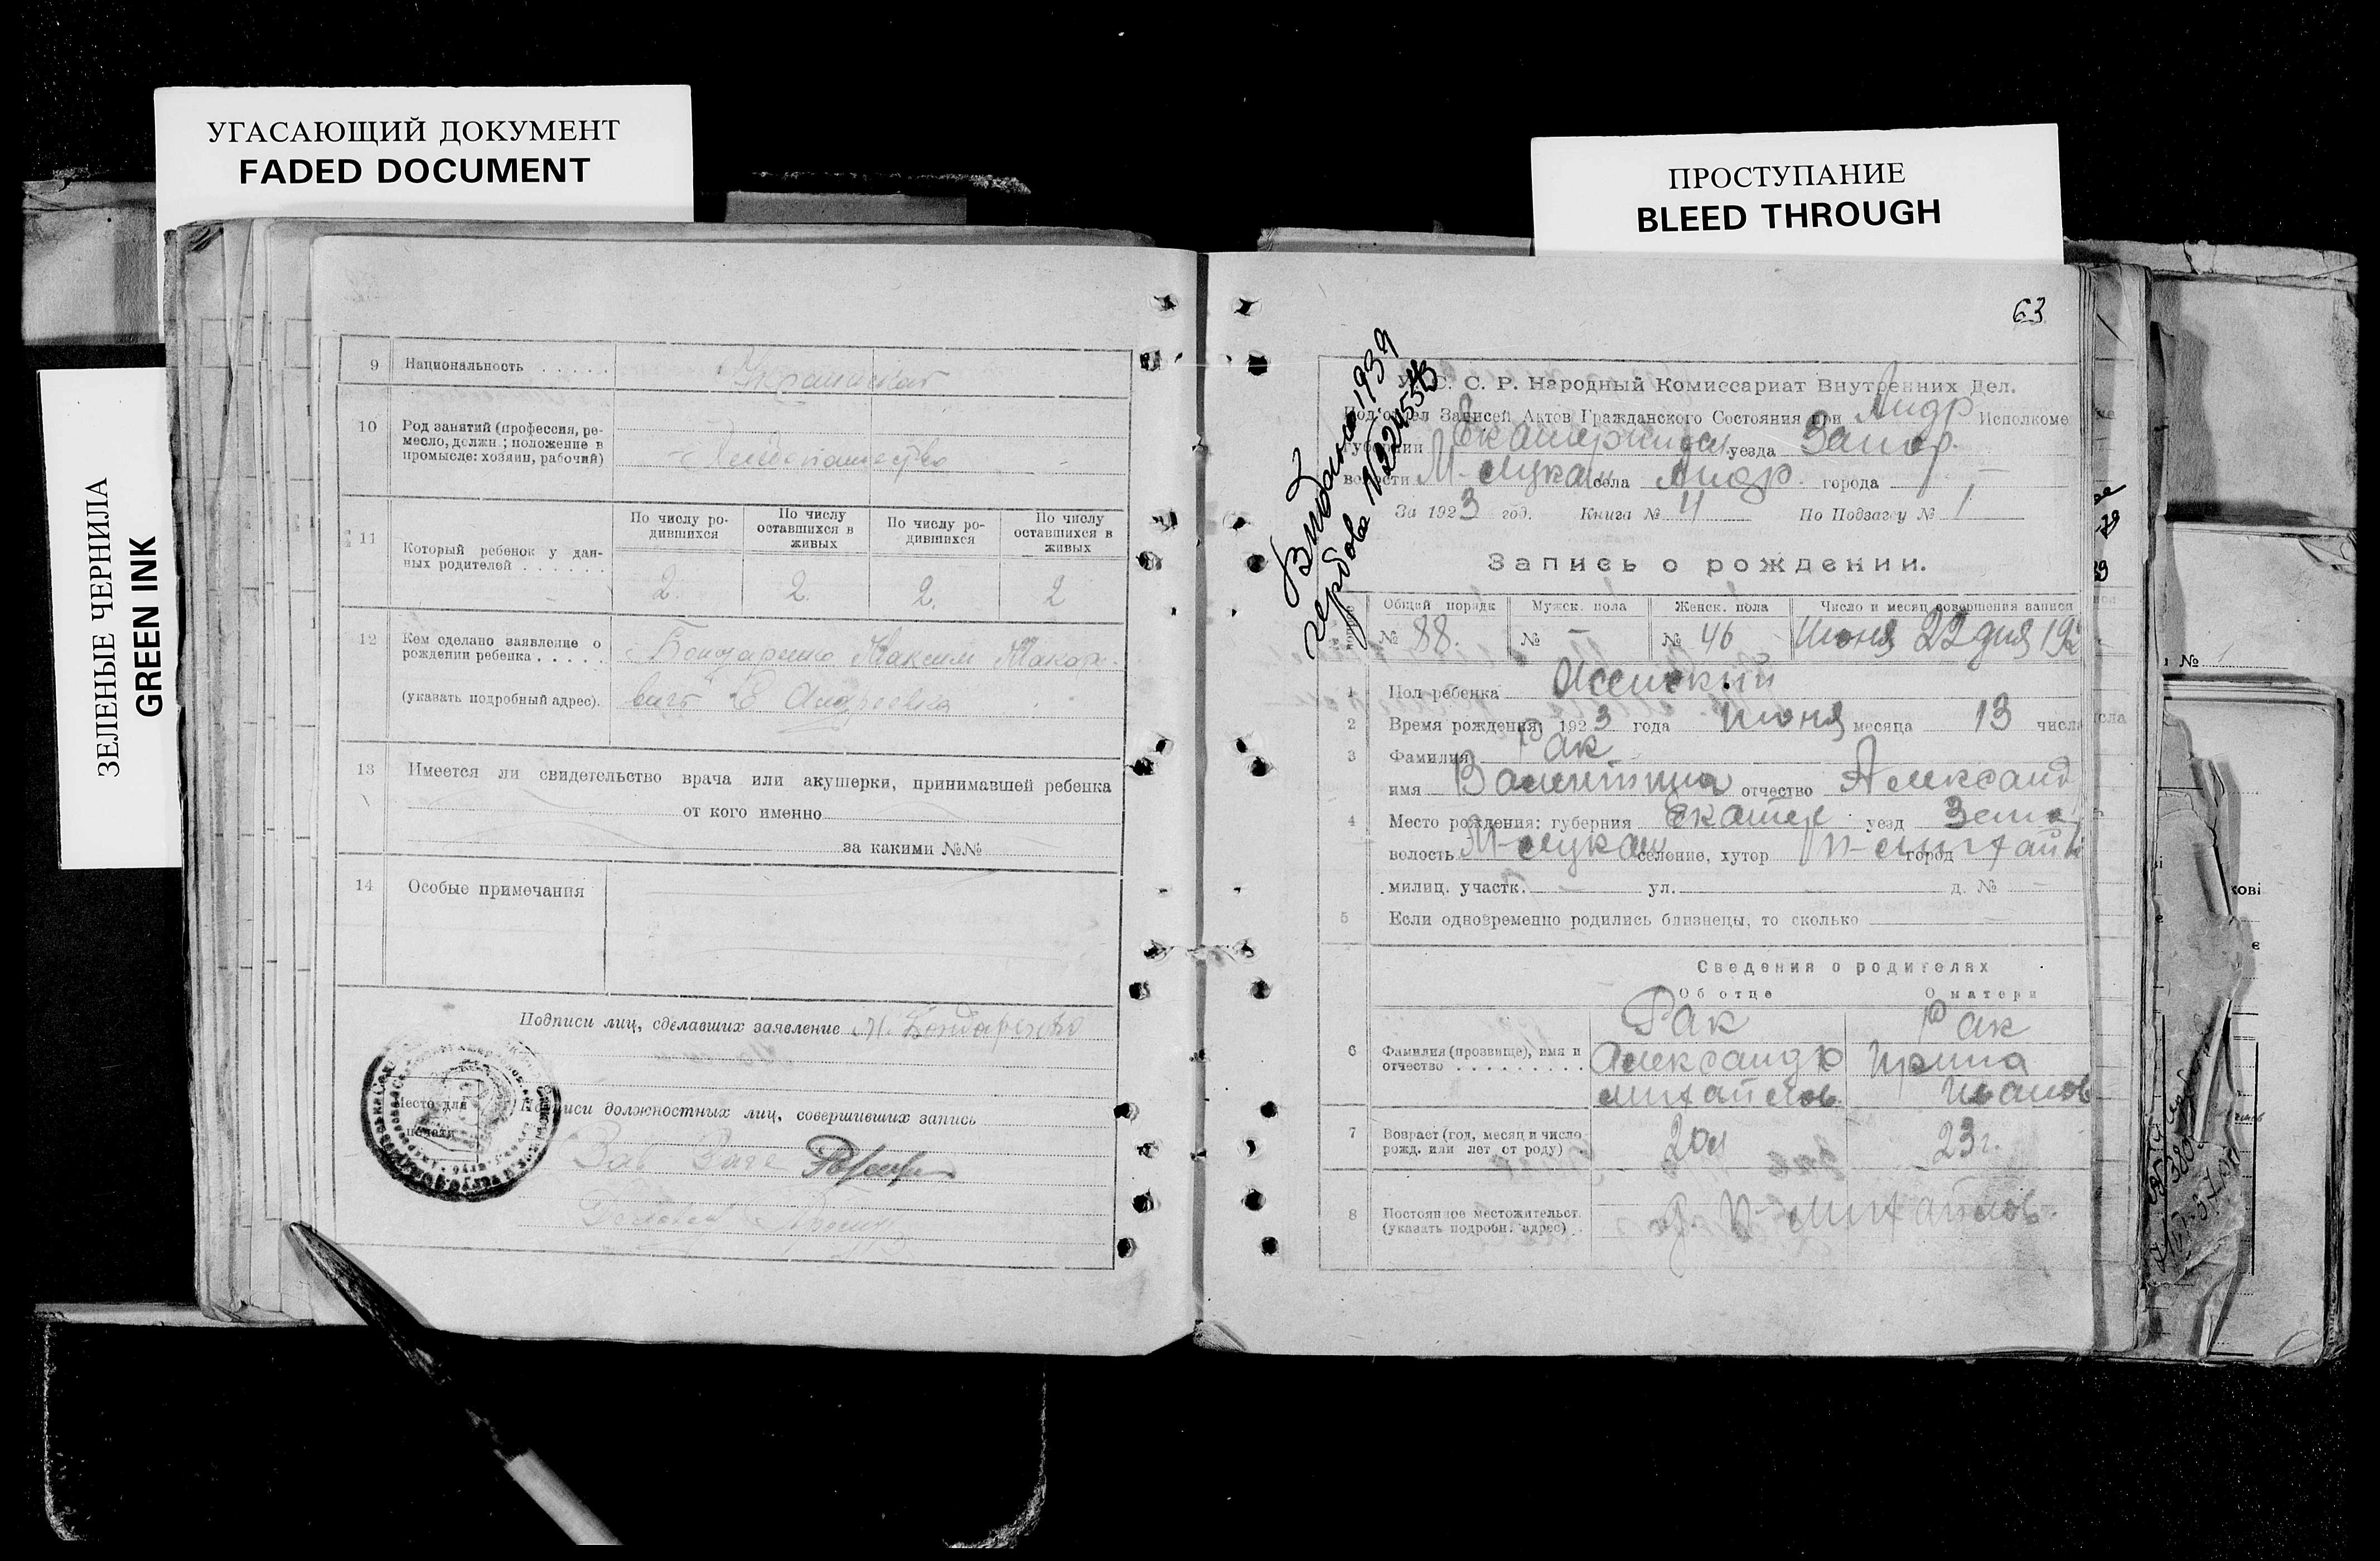 УГАСАЮЩИЙ ДОКУМЕНТ
FADED DOCUMENT
ЗЕЛЕНЫЕ ЧЕРНИЛА
GREEN INK
9 Национальность . . . . . Украинская
10 Род занятий (профессия, ре-
месло, должн.; положение в
промысле: хозяин, рабочий)
Хлебопашество
11 Который ребенок у дан-
ных родителей . . . . . .
По числу ро-
дившихся
По числу
оставшихся в
живых
По числу ро-
дившихся
По числу
оставшихся в
живых
2. 2. 2. 2
12 Кем сделано заявление о
рождении ребенка . . . . .
Бондаренко Максим Макар-
(указать подробный адрес).
вичъ Андреевка
13 Имеется ли свидетельство врача или акушерки, принимавшей ребенка
от кого именно
за какими №№
14 Особые примечания
Подписи лиц, сделавших заявление М. Бондаренко
Место для
печати
Подписи должностных лиц, совершивших запись
Зав
ПРОСТУПАНИЕ
BLEED THROUGH
63
1939
У. С. С. Р. Народный Комиссариат Внутренних Дел.
Под'отдел Записей Актов Гражданского Состояния при Андр Исполкоме
губернии Екатеринослав уезда Запор.
волости М-лукаш села Андр. города —
За 1923 год. Книга № 4 По Подзагсу № 1
Запись о рождении.
Общий порядк Мужск. пола Женск. пола Число и месяц совершения записи
№ 88. № — № 46 Июня 22 дня 192
1 Пол ребенка Женский
2 Время рождения: 1923 года июня месяца 13 числа
3 Фамилия Рак
имя Валентина отчество Александ
4 Место рождения: губерния Екатер уезд Запо
волость М-лукаш селение, хутор город
милиц. участк. — ул. — д. № —
5 Если одновременно родились близнецы, то сколько —
Сведения о родителях
Об отце О матери
6 Фамилия (прозвище), имя и
отчество . . . . . . . . .
Рак
Александр
Михайлов.
Рак
Ирина
Иванов
7 Возраст (год, месяц и число
рожд. или лет от роду)
20л
23г.
8 Постоянное местожительст.
(указать подробн. адрес) .
Михайлов.